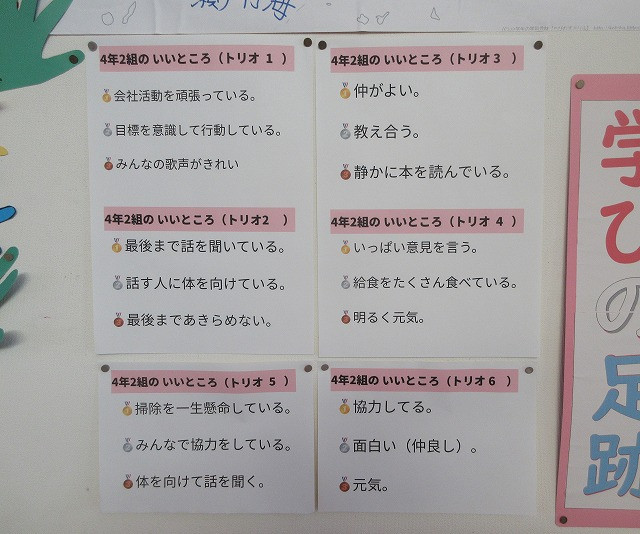 4年2組の いいところ（トリオ 1 ）
🥇会社活動を頑張っている。
🥈目標を意識して行動している。
🥉みんなの歌声がきれい
4年2組の いいところ（トリオ2 ）
🥇最後まで話を聞いている。
🥈話す人に体を向けている。
🥉最後まであきらめない。
4年2組の いいところ（トリオ３ ）
🥇仲がよい。
🥈教え合う。
🥉静かに本を読んでいる。
4年2組の いいところ（トリオ 4 ）
🥇いっぱい意見を言う。
🥈給食をたくさん食べている。
🥉明るく元気。
4年2組の いいところ（トリオ 5 ）
🥇掃除を一生懸命している。
🥈みんなで協力をしている。
🥉体を向けて話を聞く。
4年2組の いいところ（トリオ６ ）
🥇協力してる。
🥈面白い（仲良し）。
🥉元気。
学びの足跡